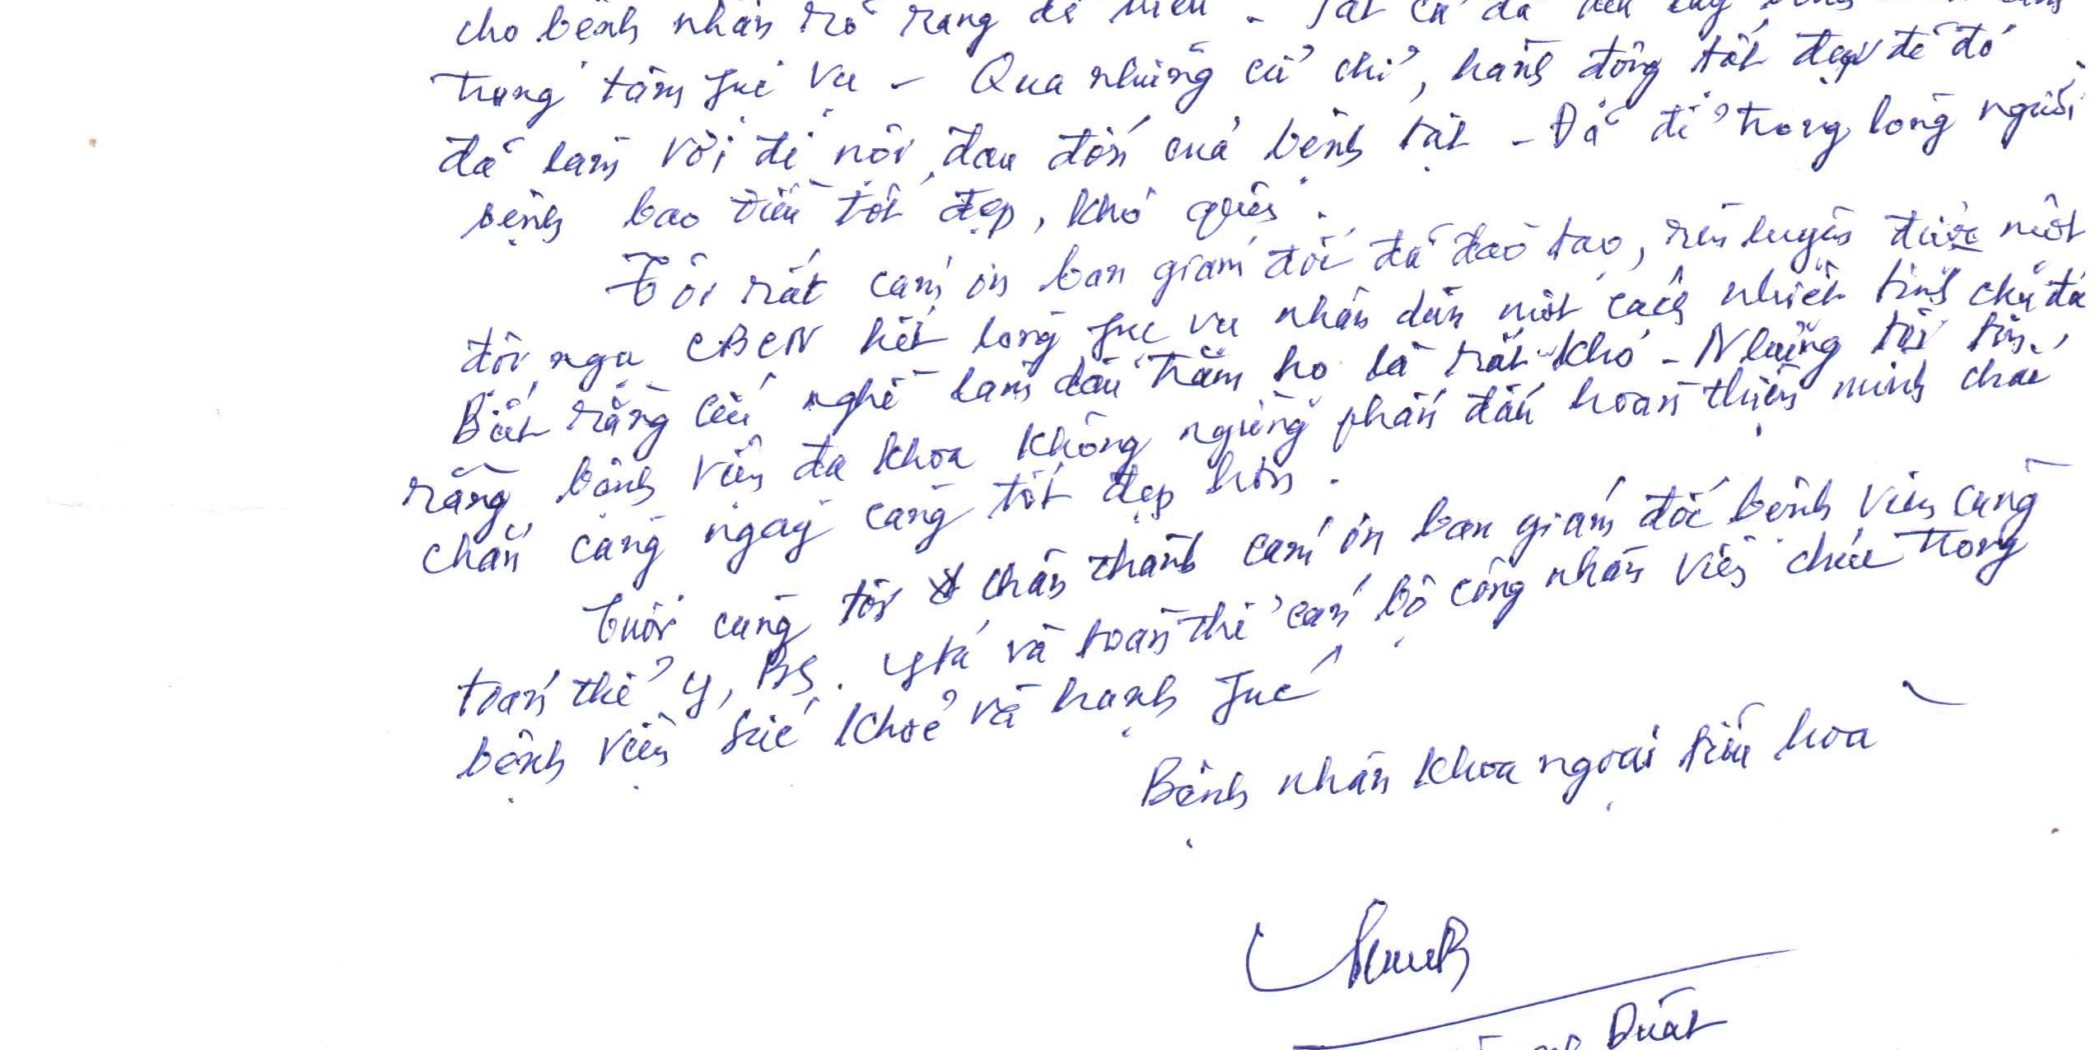 cho bệnh nhân rõ ràng dễ hiểu - Tất cả đã
trọng tâm fục vụ - Qua những cử chỉ, hành động tốt đẹp đó
đã làm vơi đi nỗi đau đớn của bệnh tật - Đã để trong lòng người
bệnh bao điều tốt đẹp, khó quên.
Tôi rất cám ơn ban giám đốc đã đào tạo, rèn luyện được một
đội ngũ CBCN hết lòng fục vụ nhân dân một cách nhiệt tình chu đáo
Biết rằng nghề làm dâu trăm họ là rất khó - Nhưng tôi tin
rằng bệnh viện đa khoa không ngừng phấn đấu hoàn thiện mình chắc
chắn càng ngày càng tốt đẹp hơn.
Cuối cùng tôi chân thành cám ơn ban giám đốc bệnh viện cùng
toàn thể y, BS. y tá và toàn thể cán bộ công nhân viên chức trong
bệnh viện sức khỏe và hạnh fúc
Bệnh nhân khoa ngoại tiêu hóa
Duật